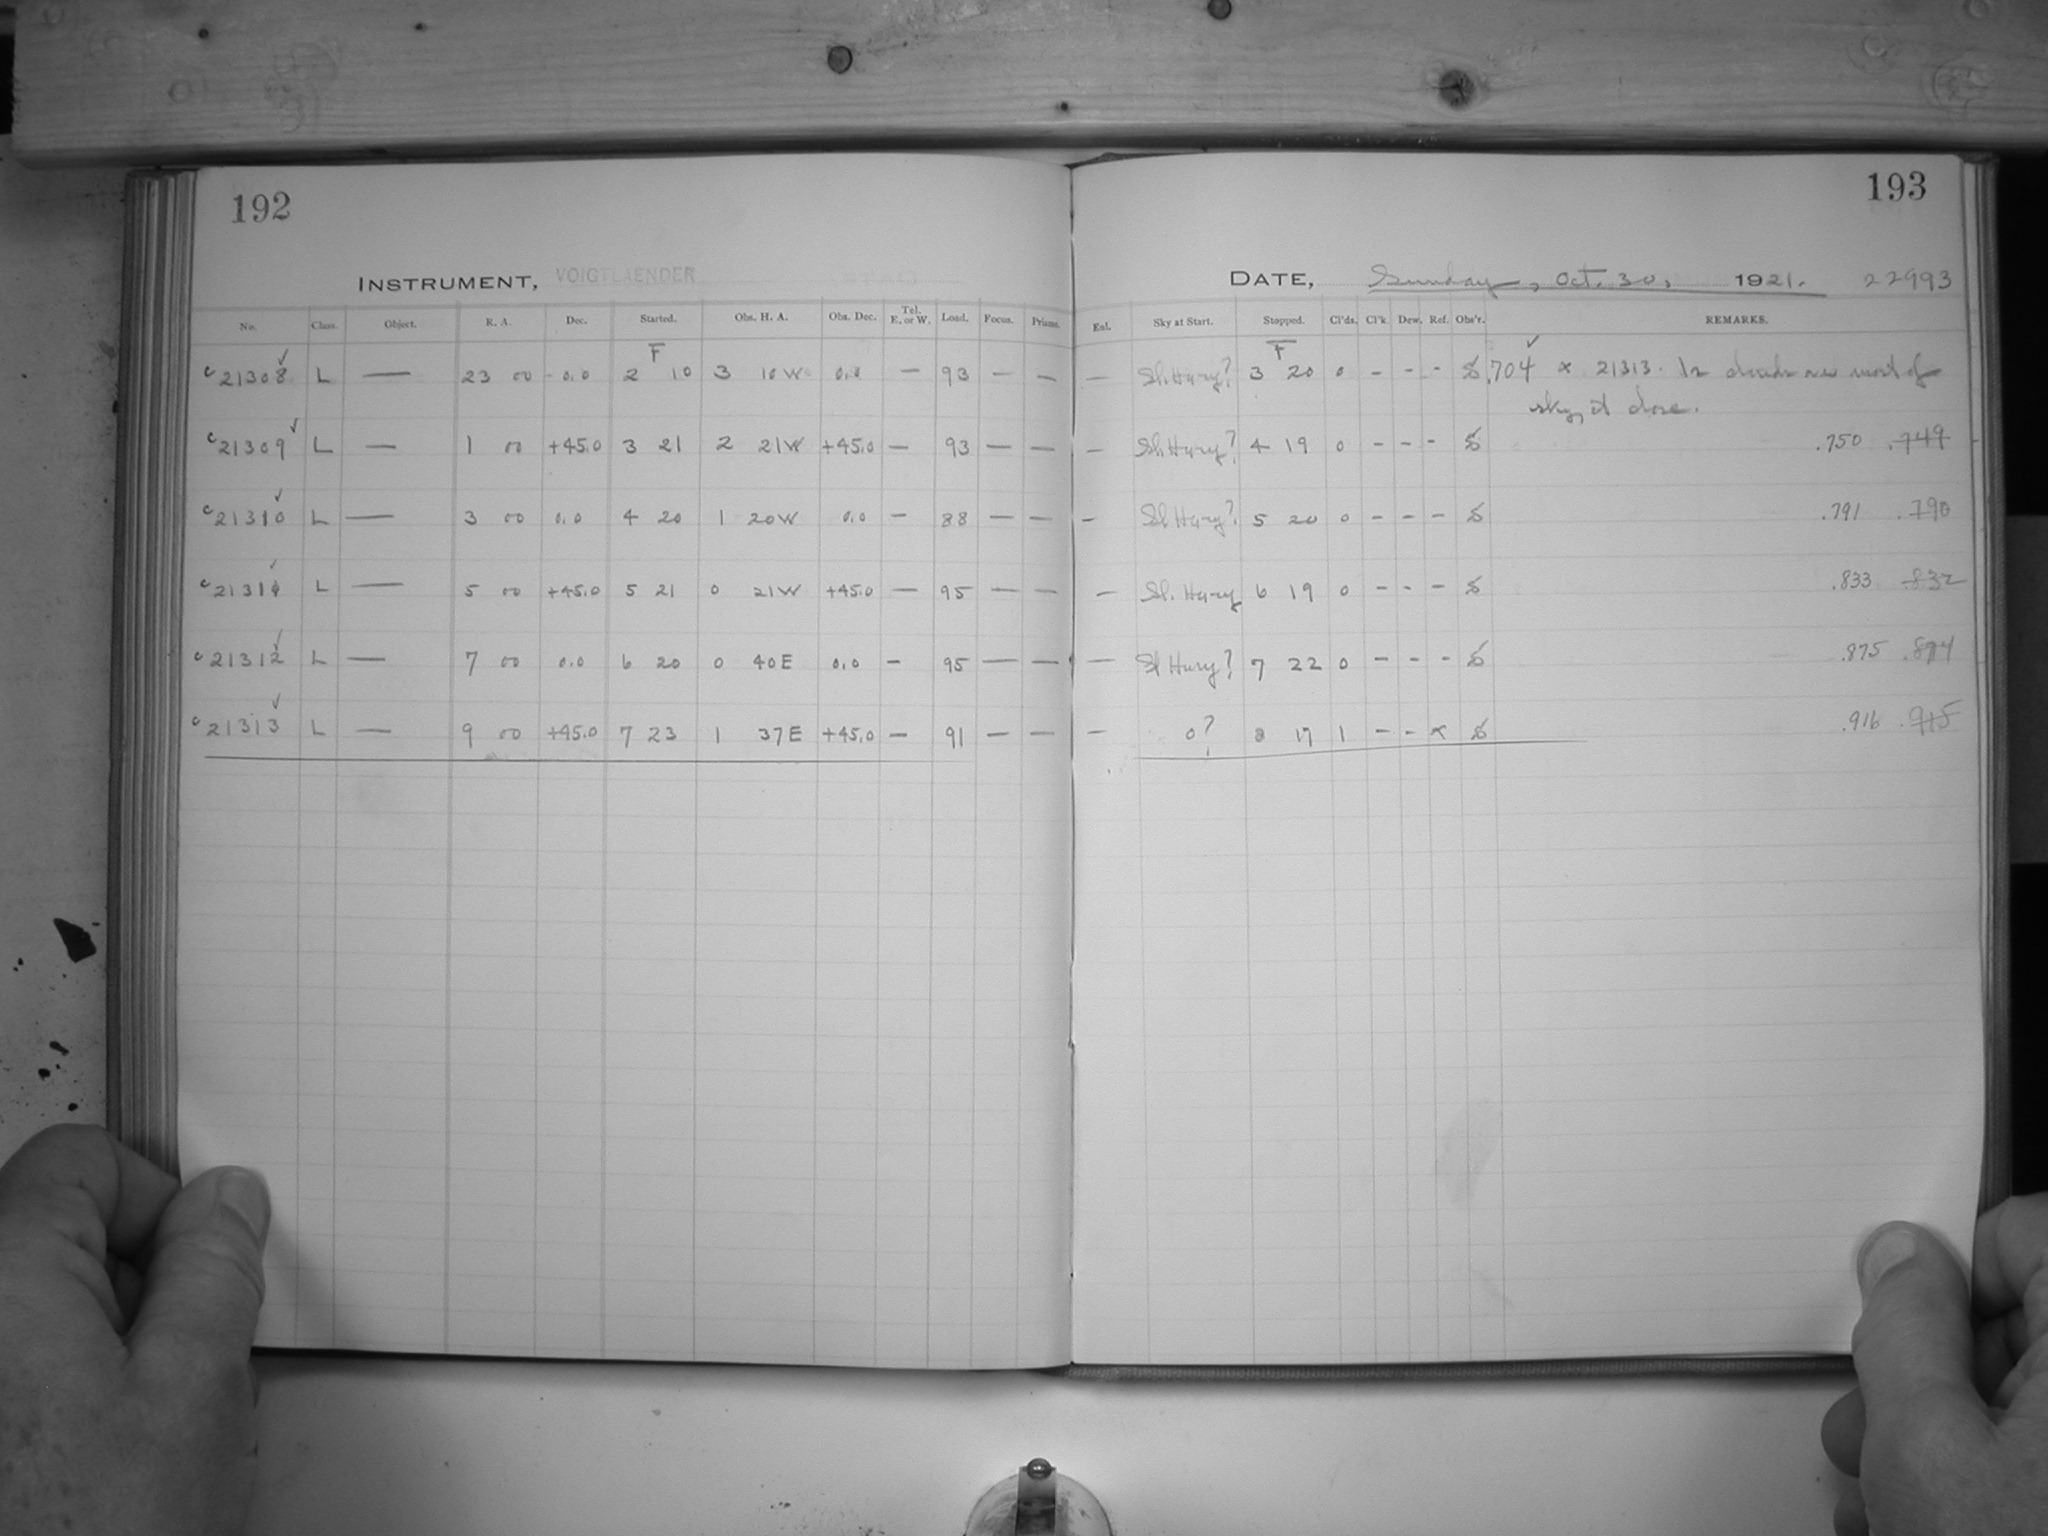 192
193
INSTRUMENT, VOIGTLAENDER
DATE, Sunday, Oct. 30, 1921. 22993
No. Class. Object. R. A. Dec. Started. Obs. H. A. Obs. Dec. Tel. E. or W. Load. Focus. Prisms. Enl. Sky at Start. Stopped. Cl'ds. Cl'k. Dew. Ref. Obs'r. REMARKS.
F F
c 21308 ✓ L — 23 00 0.0 2 10 3 10W 0.0 — 93 — — — Sl. Hazy? 3 20 0 - - - S .704 ✓ x 21313. In clouds over most of
sky, at close.
c 21309 ✓ L — 1 00 +45.0 3 21 2 21W +45.0 — 93 — — — Sl. Hazy? 4 19 0 - - - S .750 .749
c 21310 ✓ L — 3 00 0.0 4 20 1 20W 0.0 — 88 — — — Sl. Hazy? 5 20 0 - - - S .791 .790
c 21311 ✓ L — 5 00 +45.0 5 21 0 21W +45.0 — 95 — — — Sl. Hazy 6 19 0 - - - S .833 .832
c 21312 ✓ L — 7 00 0.0 6 20 0 40E 0.0 — 95 — — — Sl Hazy? 7 22 0 - - - S .875 .874
c 21313 ✓ L — 9 00 +45.0 7 23 1 37E +45.0 — 91 — — — 0? 8 17 1 - - x S .916 .915